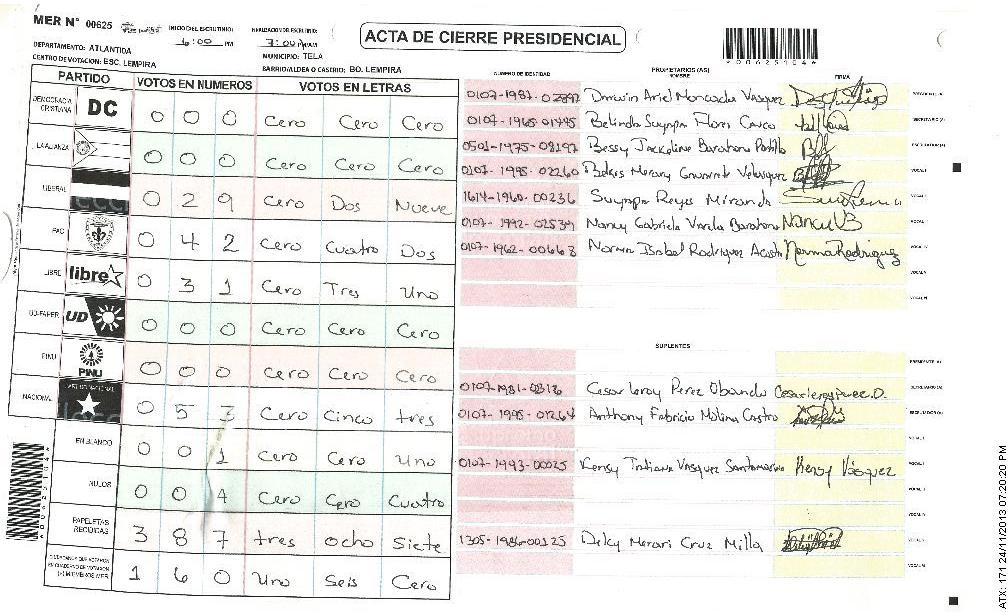 MER N° 00625
INICIO DEL ESCRUTINIO:
6:00 PM
FINALIZACION DE ESCRUTINIO:
7:00 PM
ACTA DE CIERRE PRESIDENCIAL
*00625104*
DEPARTAMENTO: ATLANTIDA
MUNICIPIO: TELA
CENTRO DE VOTACION: ESC. LEMPIRA
BARRIO/ALDEA O CASERIO: BO. LEMPIRA
PARTIDO VOTOS EN NUMEROS VOTOS EN LETRAS
DEMOCRACIA CRISTIANA DC 0 0 0 Cero Cero Cero
LA ALIANZA 0 0 0 Cero Cero Cero
LIBERAL 0 2 9 Cero Dos Nueve
PAC 0 4 2 Cero Cuatro Dos
LIBRE libre 0 3 1 Cero Tres Uno
UD-FAPER UD 0 0 0 Cero Cero Cero
PINU PINU 0 0 0 Cero Cero Cero
NACIONAL 0 5 3 Cero Cinco tres
EN BLANCO 0 0 1 Cero Cero Uno
NULOS 0 0 4 Cero Cero Cuatro
PAPELETAS RECIBIDAS 3 8 7 tres ocho Siete
CIUDADANOS QUE VOTARON EN CUADERNO DE VOTACION (+) MIEMBROS MER 1 6 0 Uno Seis Cero
NUMERO DE IDENTIDAD PROPIETARIOS (AS) NOMBRE FIRMA
0107-1987-02892 Darwin Ariel Moncada Vasquez PRESIDENTE (A)
0107-1965-01495 Belinda Suyapa Flores SECRETARIO (A)
0501-1975-08197 Bessy Jackeline Barahona Portillo ESCRUTADOR (A)
0107-1995-02260 Merary Velasquez VOCAL I
1614-1960-00236 Suyapa Reyes Miranda
0107-1992-02539 Nancy Gabriela Varela Barahona Nancy VB
0107-1962-00663 Norma Isabel Rodriguez Acosta Norma Rodriguez
SUPLENTES
PRESIDENTE (A)
0107-1981-0313 Cesar Leroy Perez Obando SECRETARIO (A)
0107-1995-01264 Anthony Fabricio Molina Castro ESCRUTADOR (A)
0107-1993-00025 Kensy Tatiana Vasquez Santamaria Kensy Vásquez
1305-1986-00125 Delcy Merari Cruz Milla
ATX: 171 24/11/2013 07:20:20 PM